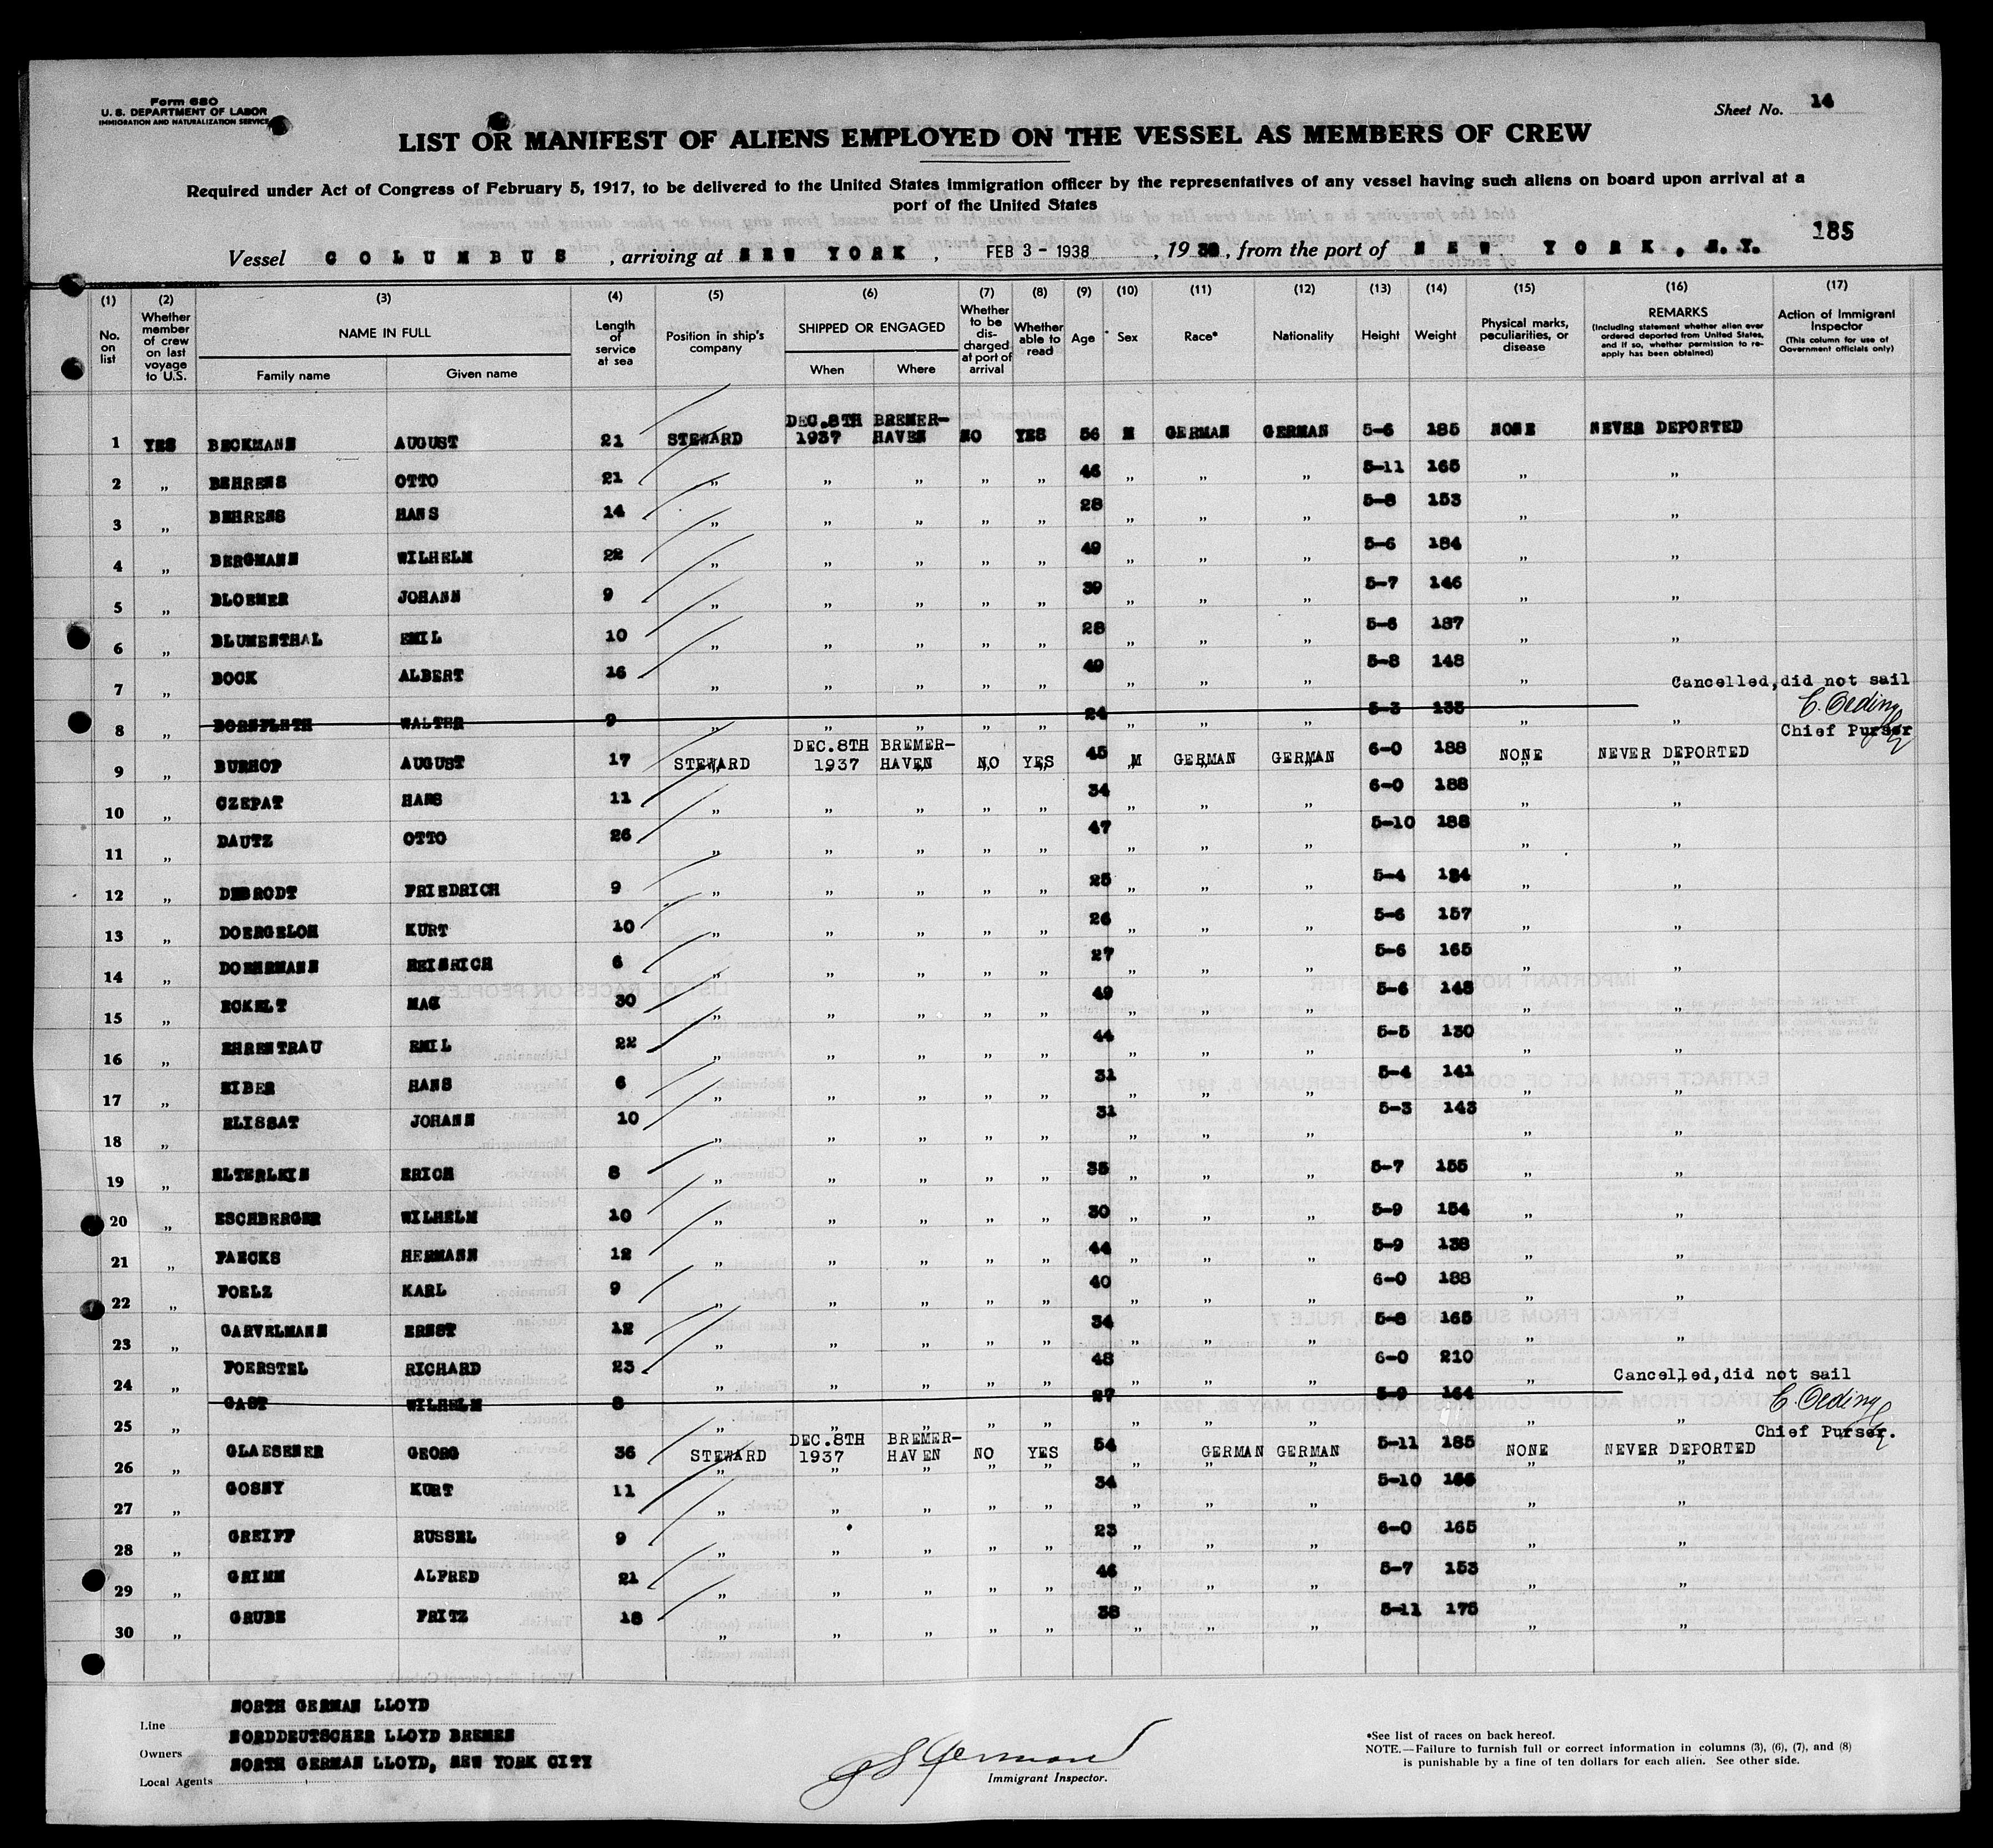 Form 680
U. S. DEPARTMENT OF LABOR
IMMIGRATION AND NATURALIZATION SERVICE
Sheet No. 14
LIST OR MANIFEST OF ALIENS EMPLOYED ON THE VESSEL AS MEMBERS OF CREW
Required under Act of Congress of February 5, 1917, to be delivered to the United States immigration officer by the representatives of any vessel having such aliens on board upon arrival at a
port of the United States
185
Vessel COLUMBUS, arriving at NEW YORK, FEB 3 - 1938, 1938, from the port of NEW YORK, N.Y.
(1) (2) (3) (4) (5) (6) (7) (8) (9) (10) (11) (12) (13) (14) (15) (16) (17)
No. on list
Whether member of crew on last voyage to U.S.
NAME IN FULL
Family name Given name
Length of service at sea
Position in ship's company
SHIPPED OR ENGAGED
When Where
Whether to be discharged at port of arrival
Whether able to read
Age
Sex
Race*
Nationality
Height
Weight
Physical marks, peculiarities, or disease
REMARKS
(Including statement whether alien ever ordered deported from United States, and if so, whether permission to reapply has been obtained)
Action of Immigrant Inspector
(This column for use of Government officials only)
1 YES BECKMANN AUGUST 21 STEWARD DEC.8TH 1937 BREMER-HAVEN NO YES 56 M GERMAN GERMAN 5-6 185 NONE NEVER DEPORTED
2 " BEHRENS OTTO 21 " " " " " 46 " " " 5-11 165 " "
3 " BEHRENS HANS 14 " " " " " 28 " " " 5-8 153 " "
4 " BERGMANN WILHELM 22 " " " " " 49 " " " 5-6 184 " "
5 " BLOEMER JOHANN 9 " " " " " 39 " " " 5-7 146 " "
6 " BLUMENTHAL EMIL 10 " " " " " 28 " " " 5-6 187 " "
7 " BOCK ALBERT 16 " " " " " 49 " " " 5-8 148 "
Cancelled,did not sail
C. Oeding
Chief Purser
8 " BORNFLETH WALTER 9 " " " " " 24 " " " 5-3 135 " "
9 " BURHOP AUGUST 17 STEWARD DEC.8TH 1937 BREMER-HAVEN NO YES 45 M GERMAN GERMAN 6-0 188 NONE NEVER DEPORTED
10 " CZEPAT HANS 11 " " " " " 34 " " " 6-0 188 " "
11 " DAUTZ OTTO 26 " " " " " 47 " " " 5-10 188 " "
12 " DEBRODT FRIEDRICH 9 " " " " " 25 " " " 5-4 " "
13 " DOERGELOH KURT 10 " " " " " 26 " " " 5-6 157 " "
14 " DOEHRMANN HEINRICH 6 " " " " " 27 " " " 5-6 165 " "
15 " ECKELT MAC 30 " " " " " 49 " " " 5-6 148 " "
16 " EHRENTRAU EMIL 22 " " " " " 44 " " " 5-5 130 " "
17 " EIBER HANS 6 " " " " " 31 " " " 5-4 141 " "
18 " ELISSAT JOHANN 10 " " " " " 31 " " " 5-3 143 " "
19 " ELTERLEIN ERICH 8 " " " " " 35 " " " 5-7 155 " "
20 " ESCHBERGER WILHELM 10 " " " " " 30 " " " 5-9 154 " "
21 " FAECKS HERMANN 12 " " " " " 44 " " " 5-9 138 " "
22 " FOELZ KARL 9 " " " " " 40 " " " 6-0 188 " "
23 " GARVELMANN ERNST 12 " " " " " 34 " " " 5-8 165 " "
24 " FOERSTEL RICHARD 23 " " " " " 48 " " " 6-0 210 " "
Cancelled,did not sail
C. Oeding
Chief Purser.
25 " GAST WILHELM 8 " " " " " 27 " " " 5-9 164 " "
26 " GLAESENER GEORG 36 STEWARD DEC.8TH 1937 BREMER-HAVEN NO YES 54 " GERMAN GERMAN 5-11 185 NONE NEVER DEPORTED
27 " GOSNY KURT 11 " " " " " 34 " " " 5-10 166 " "
28 " GREIFF RUSSEL 9 " " " " " 23 " " " 6-0 165 " "
29 " GRIMM ALFRED 21 " " " " " 46 " " " 5-7 153 " "
30 " GRUBE FRITZ 18 " " " " " 38 " " " 5-11 175 " "
Line NORTH GERMAN LLOYD
Owners NORDDEUTSCHER LLOYD BREMEN
Local Agents NORTH GERMAN LLOYD, NEW YORK CITY
Immigrant Inspector.
*See list of races on back hereof.
NOTE.—Failure to furnish full or correct information in columns (3), (6), (7), and (8)
is punishable by a fine of ten dollars for each alien. See other side.